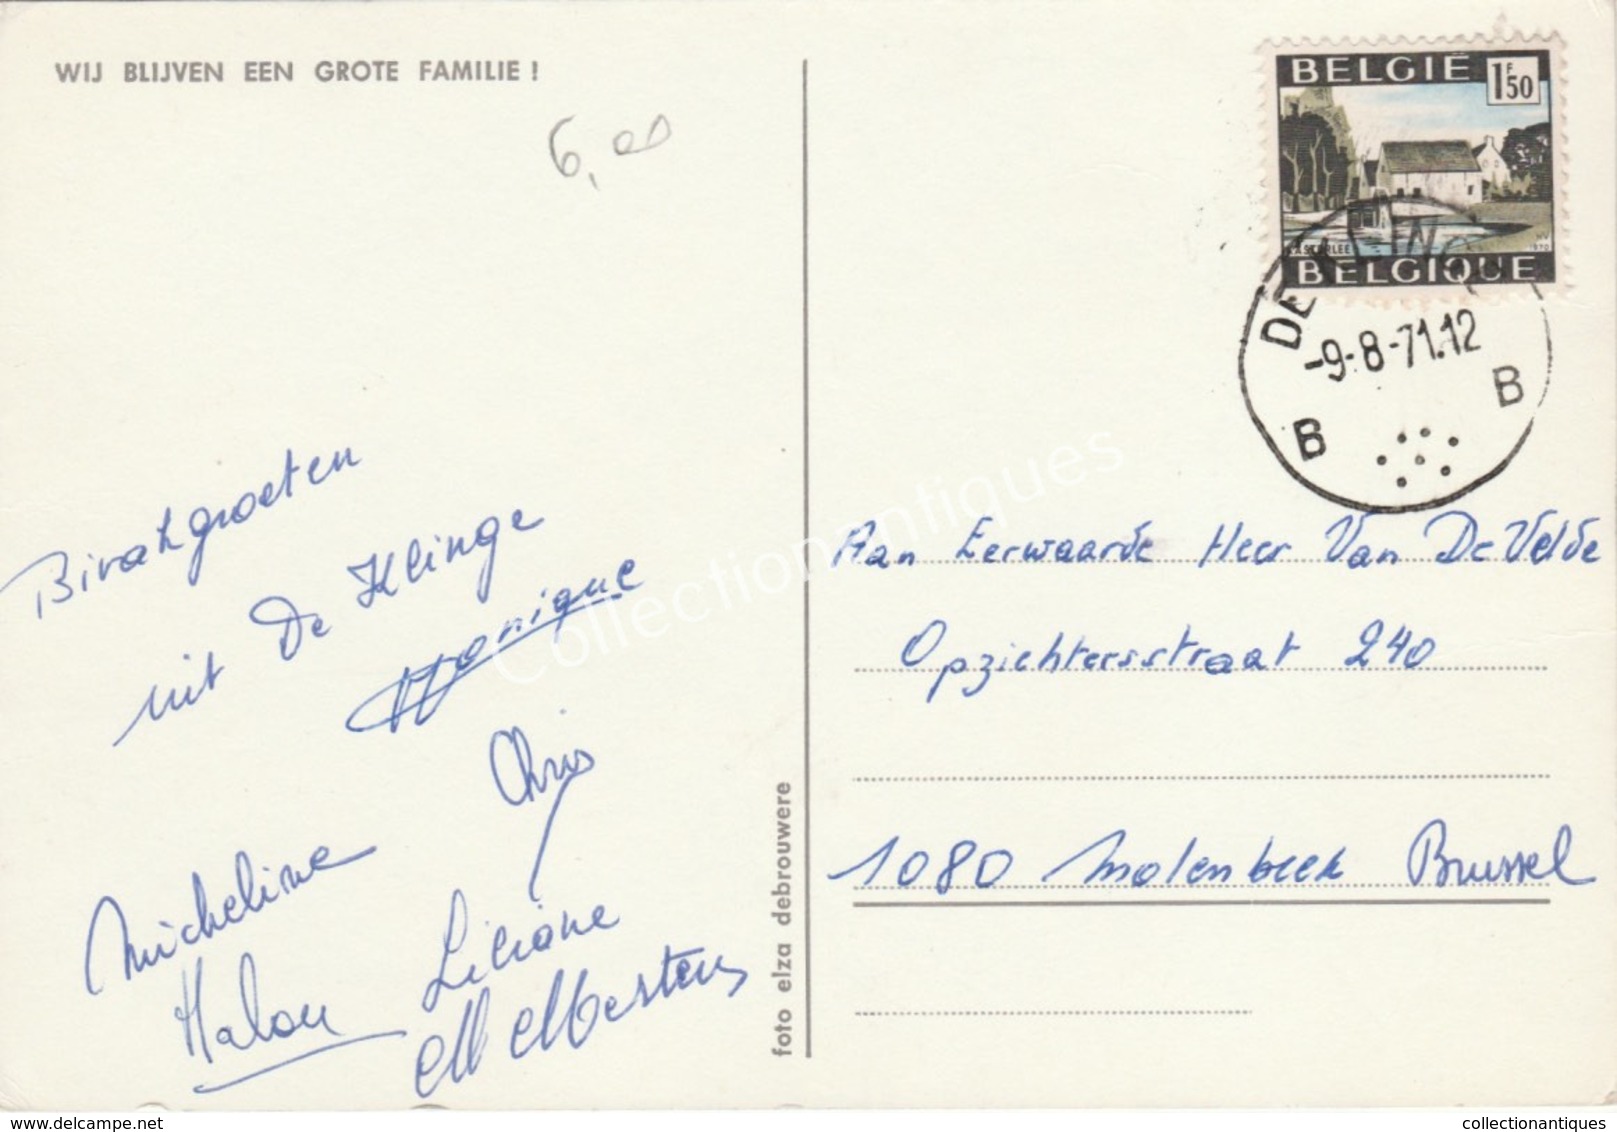 WIJ BLIJVEN EEN GROTE FAMILIE !
6,00
Bivakgroeten
uit De Klinge
Monique
Chris
Micheline
Liliane
M Mertens
foto elza debrouwere
BELGIË 1F50
KASTERLEE NV 1970
BELGIQUE
DE KLINGE
-9-8-71.12
B B
Aan Eerwaarde Heer Van De Velde
Opzichtersstraat 240
1080 Molenbeek Brussel
Collectionantiques
www.delcampe.net
collectionantiques